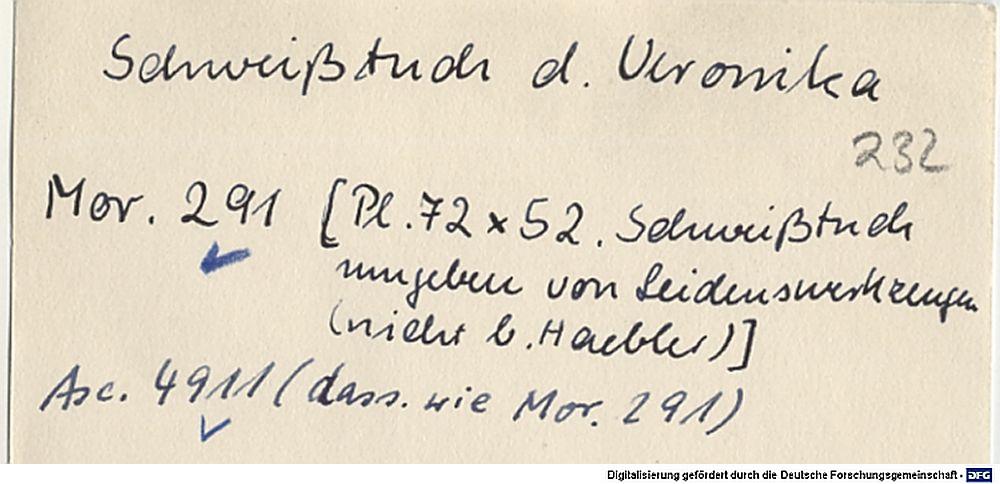 Schweißtuch d. Veronika
232
Mor. 291 [Pl. 72 x 52. Schweißtuch
umgeben von Leidenswerkzeugen
(nicht b. Haebler)]
Asc. 4911 (dass. wie Mor. 291)
Digitalisierung gefördert durch die Deutsche Forschungsgemeinschaft - DFG